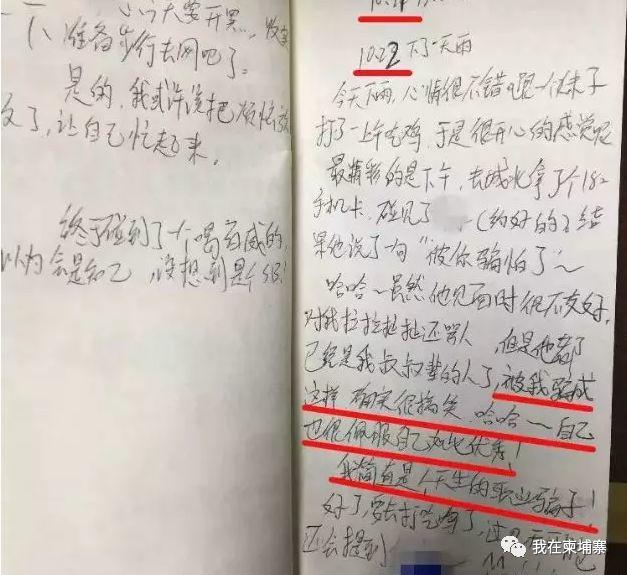 今天要开黑，
一下，准备步行去网吧了。
是的，我或许该把
了，让自己忙起来。
终于碰到了一个喝
以为会是知己，没想到是个
10.22 下了一天雨
今天下雨，心情很不错，跟一个妹子
打了一上午吃鸡，于是很开心的感觉呢
最精彩的是下午，去城北拿了个182
手机卡，碰见了（约好的）结
果他说了一句“被你骗怕了”～
哈哈～虽然他见面时很不友好，
对我拉拉扯扯还骂人，但是他都
已经是我叔叔辈的人了，被我骗成
这样，确实很搞笑，哈哈～自己
也很佩服自己如此优秀！
我简直是个天生的职业骗子！
好了，要去打吃鸡了，
还会提到
我在柬埔寨